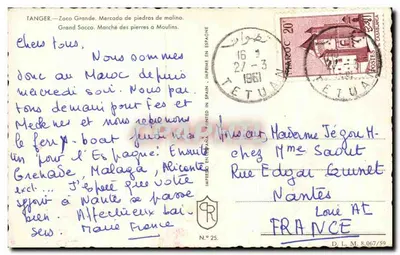 TANGER.— Zoco Grande. Mercado de piedras de molino.
Grand Socco. Marché des pierres a Moulins.
Chers tous,
Nous sommes
donc au Maroc depuis
mercredi soir. Nous par
tons demain pour Fes et
Meknes et nous
le ferry-boat
un pour l'Espagne: Ensuite
Grenade, Malaga, Alicante
ect... J'espère que votre
séjour à Nantes se passe
bien. Affectueux bai-
sers. Marie France
تطوان
16
27-3
1961
TETUAN
MAROC 20
TETUAN
Monsieur Madame Jégou H.
chez Mme Saout
Rue Edgar
Nantes
Loire At
FRANCE
N.º 25
D. L. M. 8.067/59